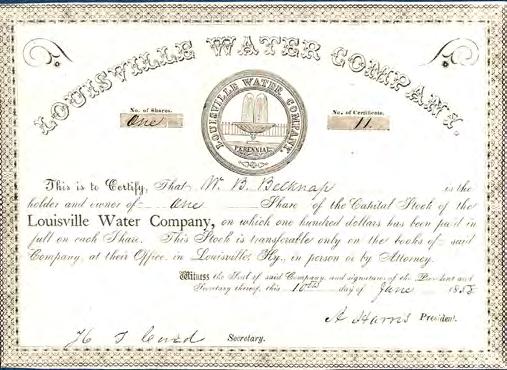 LOUISVILLE WATER COMPANY.
No. of Shares. No. of Certificate.
One 11
LOUISVILLE WATER COMPANY
PERENNIAL
This is to Certify, That W. B. Belknap is the
holder and owner of one Share of the Capital Stock of the
Louisville Water Company, on which one hundred dollars has been paid in
full on each Share. This Stock is transferable only on the books of said
Company, at their Office, in Louisville, Ky., in person or by Attorney.
Witness the Seal of said Company, and signatures of the President and
Secretary thereof, this 10th day of June 1858
A Harris President.
Secretary.